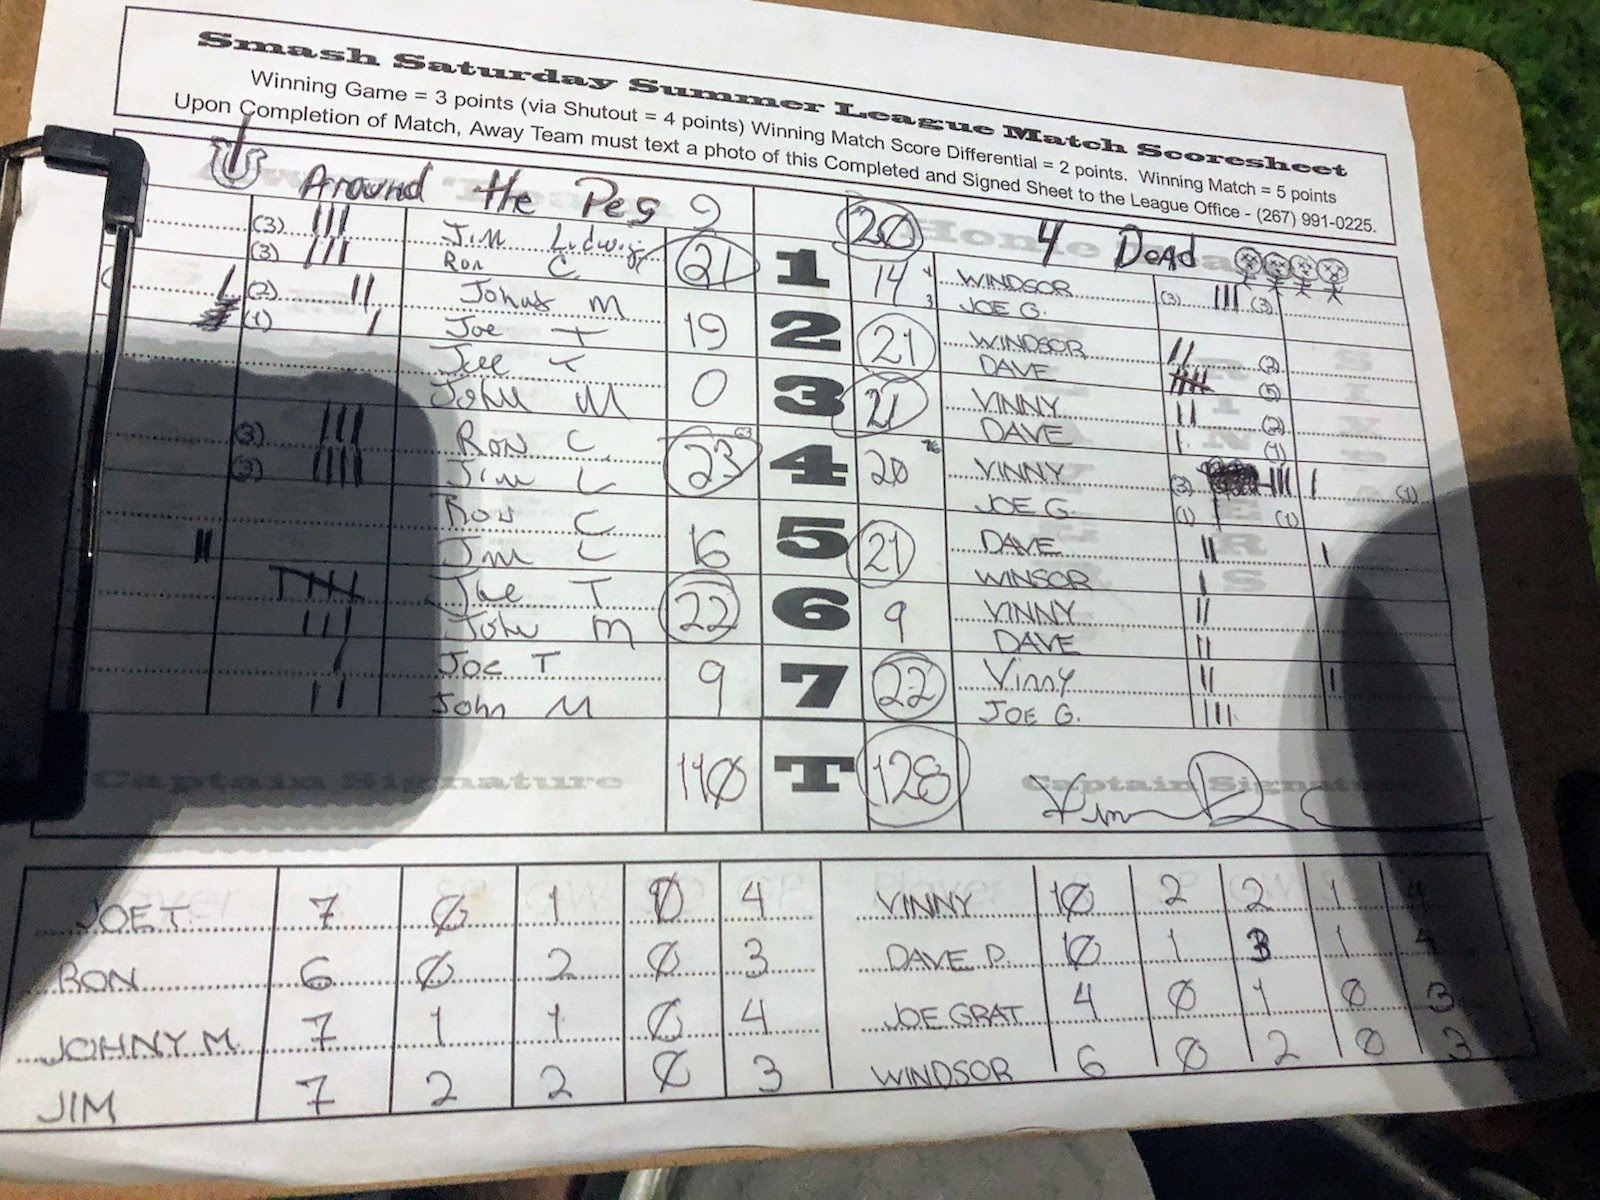 Smash Saturday Summer League Match Scoresheet
Winning Game = 3 points (via Shutout = 4 points) Winning Match Score Differential = 2 points. Winning Match = 5 points
Upon Completion of Match, Away Team must text a photo of this Completed and Signed Sheet to the League Office - (267) 991-0225.
Around the Peg 9 20 4 Dead
(3) Jim Ludwig 21 1 14 4 WINDSOR (3) (3)
(3) Ron C. 3 JOE G.
(2) John M 19 2 21 WINDSOR (2)
(1) Joe T DAVE (5)
Joe T 0 3 21 VINNY (2)
John M DAVE (1)
(3) Ron C. 23 63 4 20 76 VINNY (3) (1)
(3) Jim L JOE G. (1) (1)
Ron C 16 5 21 DAVE
Jim L WINSOR
Joe T 22 6 9 VINNY
John M DAVE
Joe T 9 7 22 Vinny
John M JOE G.
Captain Signature 110 T 128 Captain Signature
JOE T. 7 0 1 0 4 VINNY 10 2 2 1 4
RON 6 0 2 0 3 DAVE P. 10 1 3 1 4
JOHNY M. 7 1 1 0 4 JOE GRAT 4 0 1 0 3
JIM 7 2 2 0 3 WINDSOR 6 0 2 0 3